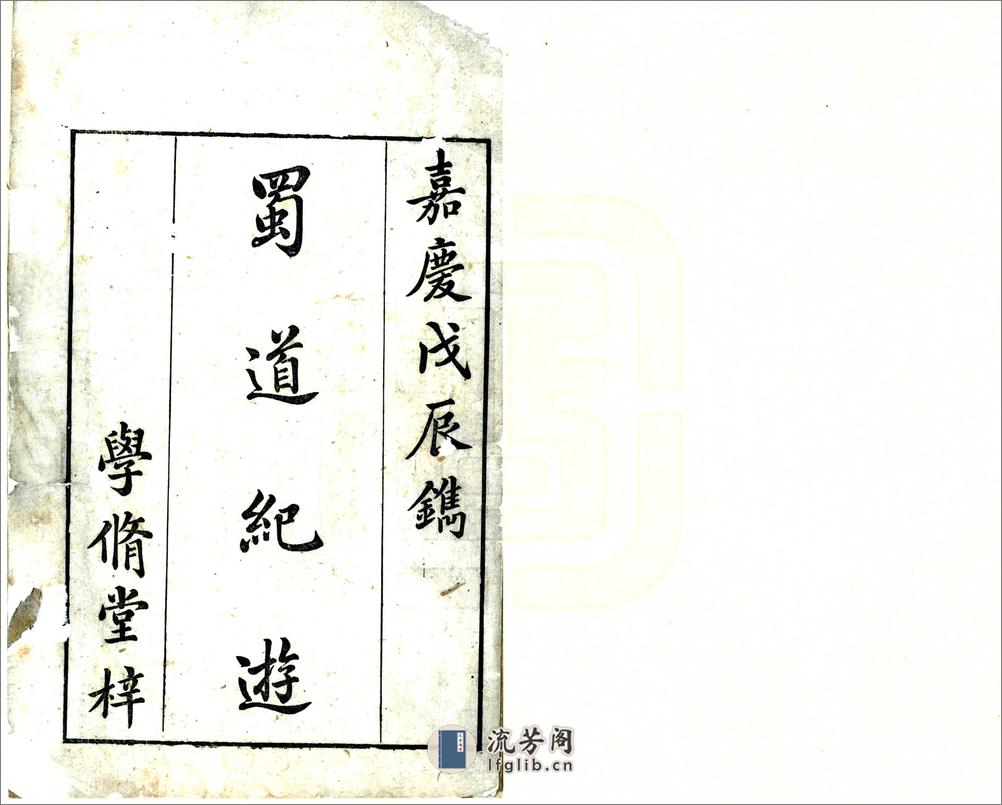 嘉慶戊辰鐫
蜀道紀遊
學脩堂梓
流芳阁
lfglib.cn